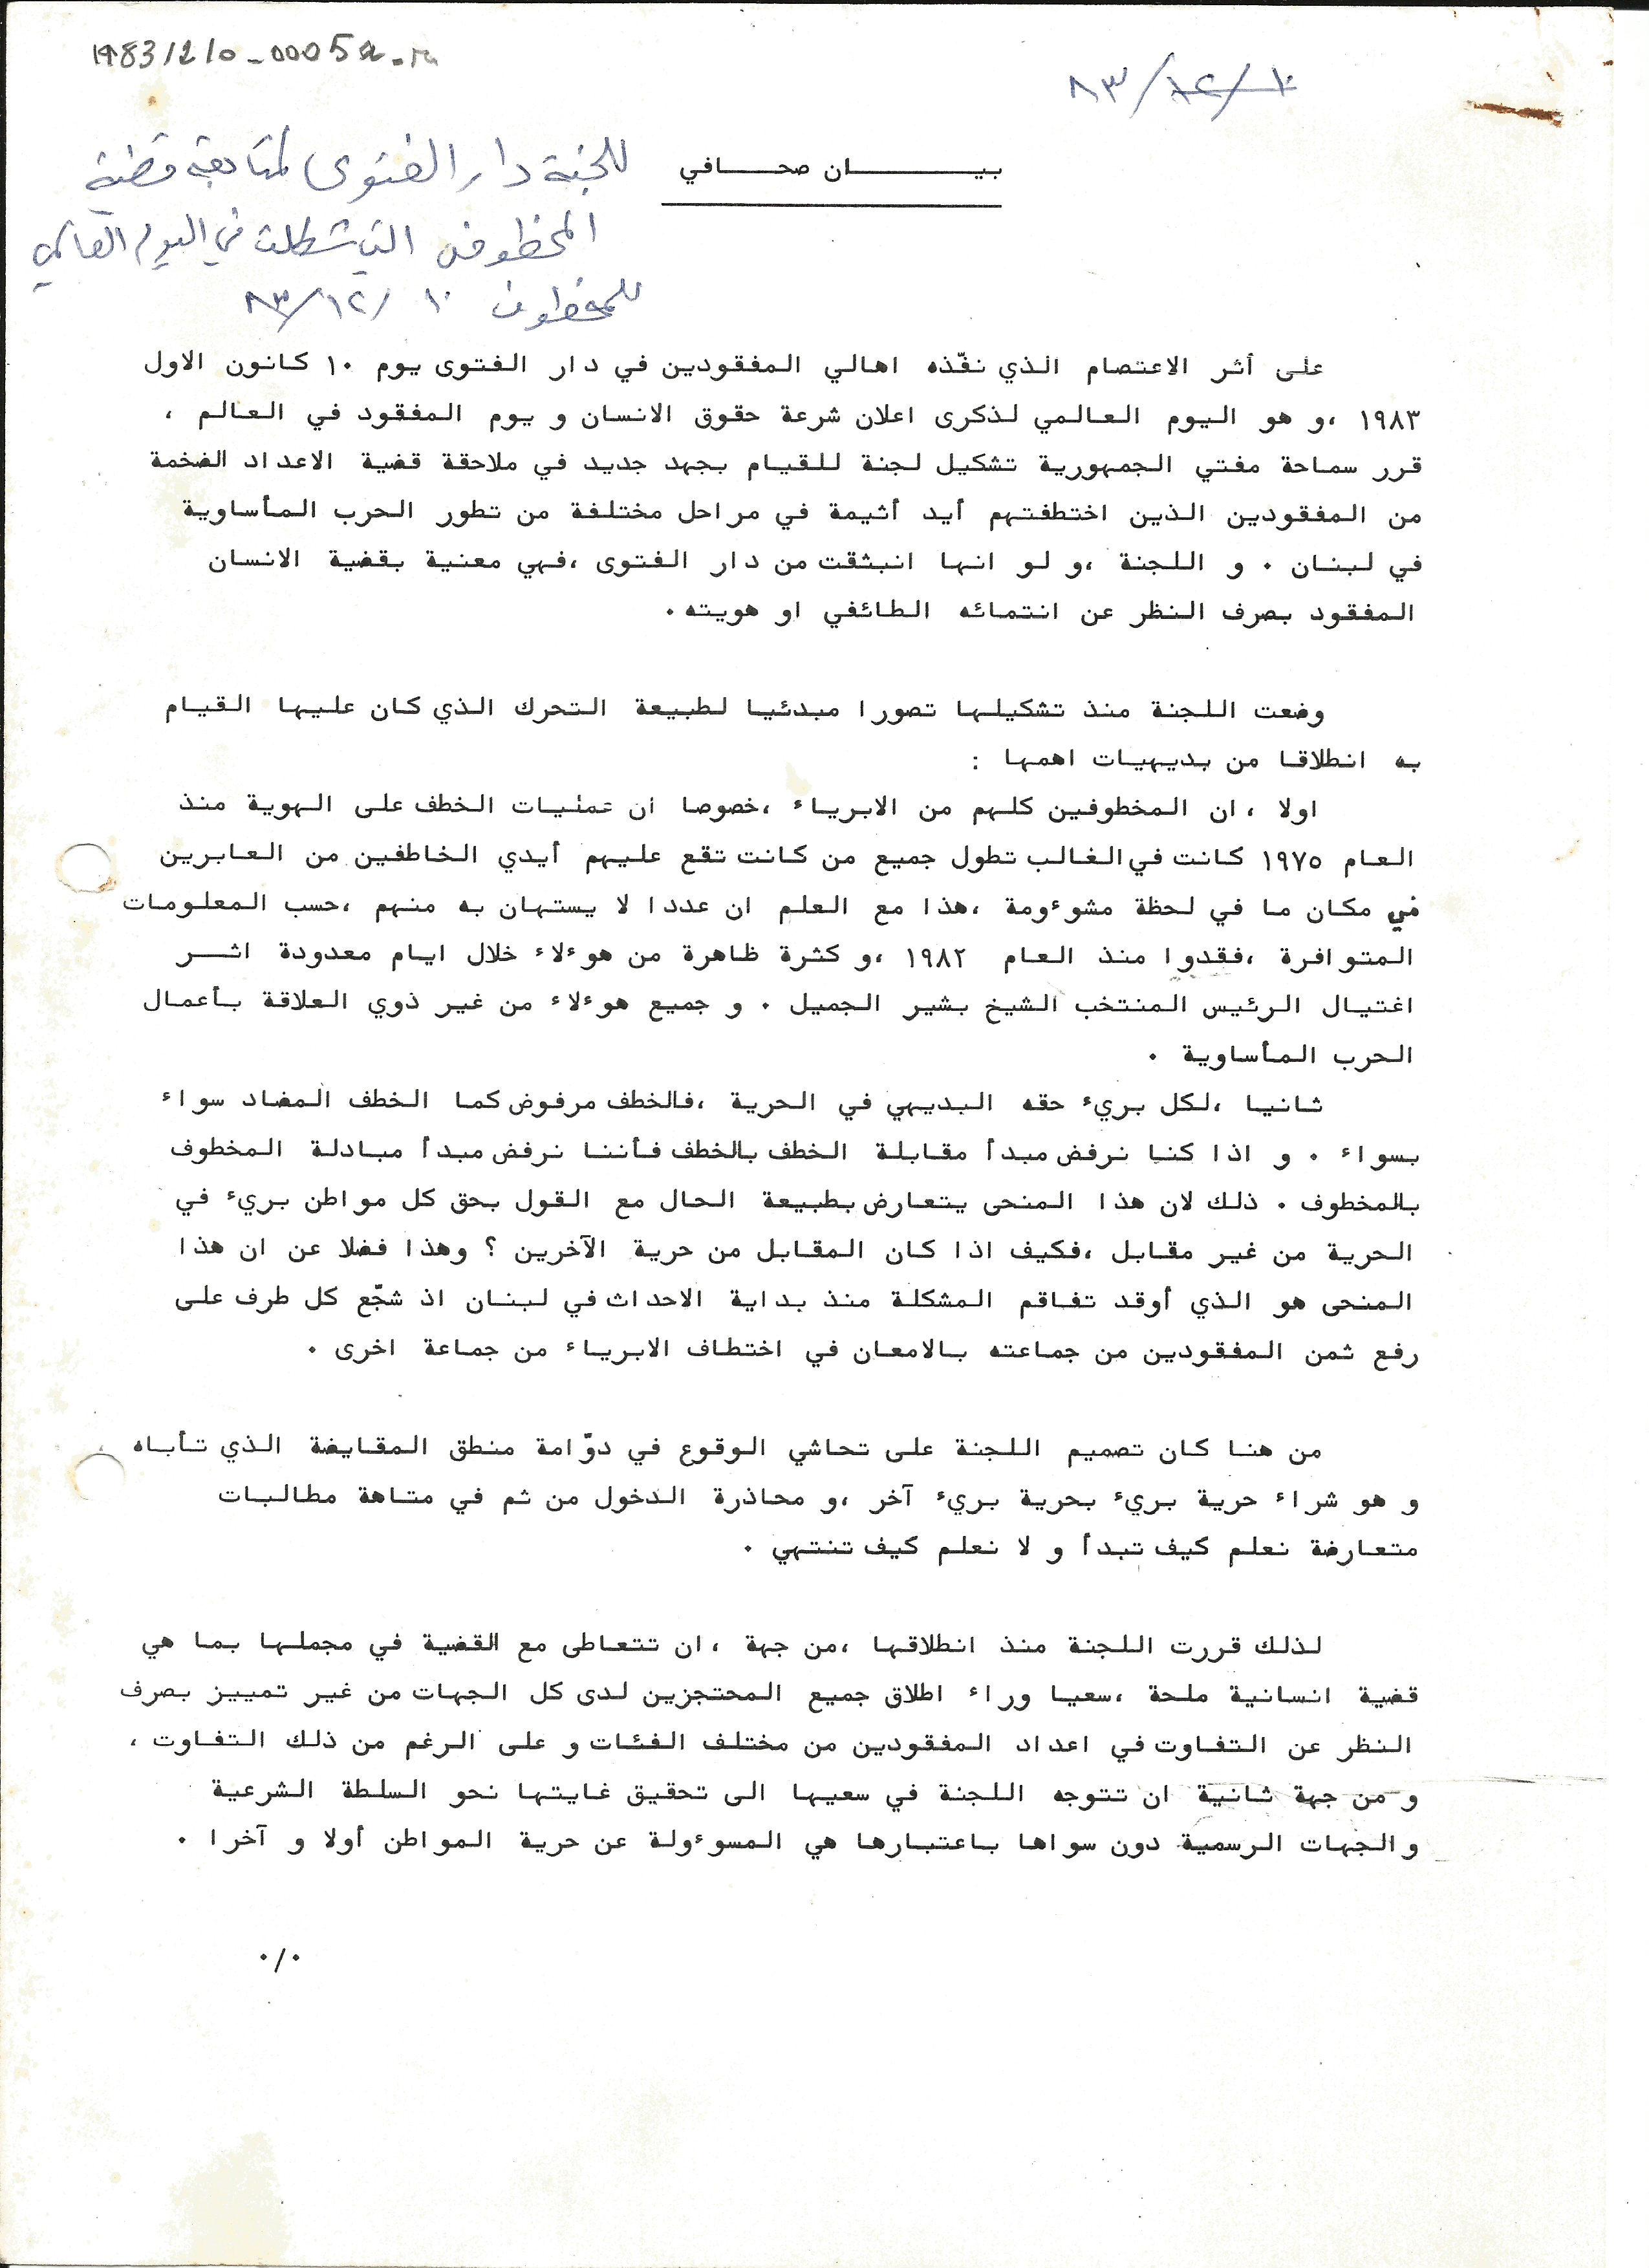 1983/210-0005a-m
١٠/١٢/٨٣
بيـــان صحــافي
للجنة دار الفتوى لمتابعة قضية
المخطوفين التي شكلت في اليوم العالمي
للمخطوف ١٠/١٢/٨٣
على أثر الاعتصام الذي نفّذه اهالي المفقودين في دار الفتوى يوم ١٠ كانون الاول
١٩٨٣ ،و هو اليوم العالمي لذكرى اعلان شرعة حقوق الانسان و يوم المفقود في العالم ،
قرر سماحة مفتي الجمهورية تشكيل لجنة للقيام بجهد جديد في ملاحقة قضية الاعداد الضخمة
من المفقودين الذين اختطفتهم أيد أثيمة في مراحل مختلفة من تطور الحرب المأساوية
في لبنان ٠ و اللجنة ،و لو انها انبثقت من دار الفتوى ،فهي معنية بقضية الانسان
المفقود بصرف النظر عن انتمائه الطائفي او هويته ٠
وضعت اللجنة منذ تشكيلها تصورا مبدئيا لطبيعة التحرك الذي كان عليها القيام
به انطلاقا من بديهيات اهمها :
اولا ، ان المخطوفين كلهم من الابرياء ،خصوصا ان عمليات الخطف على الهوية منذ
العام ١٩٧٥ كانت في الغالب تطول جميع من كانت تقع عليهم أيدي الخاطفين من العابرين
في مكان ما في لحظة مشوءومة ،هذا مع العلم ان عددا لا يستهان به منهم ،حسب المعلومات
المتوافرة ،فقدوا منذ العام ١٩٨٢ ،و كثرة ظاهرة من هوءلاء خلال ايام معدودة اثــر
اغتيال الرئيس المنتخب الشيخ بشير الجميل ٠ و جميع هوءلاء من غير ذوي العلاقة بأعمال
الحرب المأساوية ٠
ثانيا ،لكل بريء حقه البديهي في الحرية ،فالخطف مرفوض كما الخطف المضاد سواء
بسواء ٠ و اذا كنا نرفض مبدأ مقابلة الخطف بالخطف فأننا نرفض مبدأ مبادلة المخطوف
بالمخطوف ٠ ذلك لان هذا المنحى يتعارض بطبيعة الحال مع القول بحق كل مواطن بريء في
الحرية من غير مقابل ،فكيف اذا كان المقابل من حرية الآخرين ؟ وهذا فضلا عن ان هذا
المنحى هو الذي أوقد تفاقم المشكلة منذ بداية الاحداث في لبنان اذ شجّع كل طرف على
رفع ثمن المفقودين من جماعته بالامعان في اختطاف الابرياء من جماعة اخرى ٠
من هنا كان تصميم اللجنة على تحاشي الوقوع في دوّامة منطق المقايضة الذي تأباه ،
و هو شراء حرية بريء بحرية بريء آخر ،و محاذرة الدخول من ثم في متاهة مطالبات
متعارضة نعلم كيف تبدأ و لا نعلم كيف تنتهي ٠
لذلك قررت اللجنة منذ انطلاقها ،من جهة ، ان تتعاطى مع القضية في مجملها بما هي
قضية انسانية ملحة ،سعيا وراء اطلاق جميع المحتجزين لدى كل الجهات من غير تمييز بصرف
النظر عن التفاوت في اعداد المفقودين من مختلف الفئات و على الرغم من ذلك التفاوت ،
و من جهة ثانية ان تتوجه اللجنة في سعيها الى تحقيق غايتها نحو السلطة الشرعية
والجهات الرسمية دون سواها باعتبارها هي المسوءولة عن حرية المواطن أولا و آخرا ٠
٠/٠